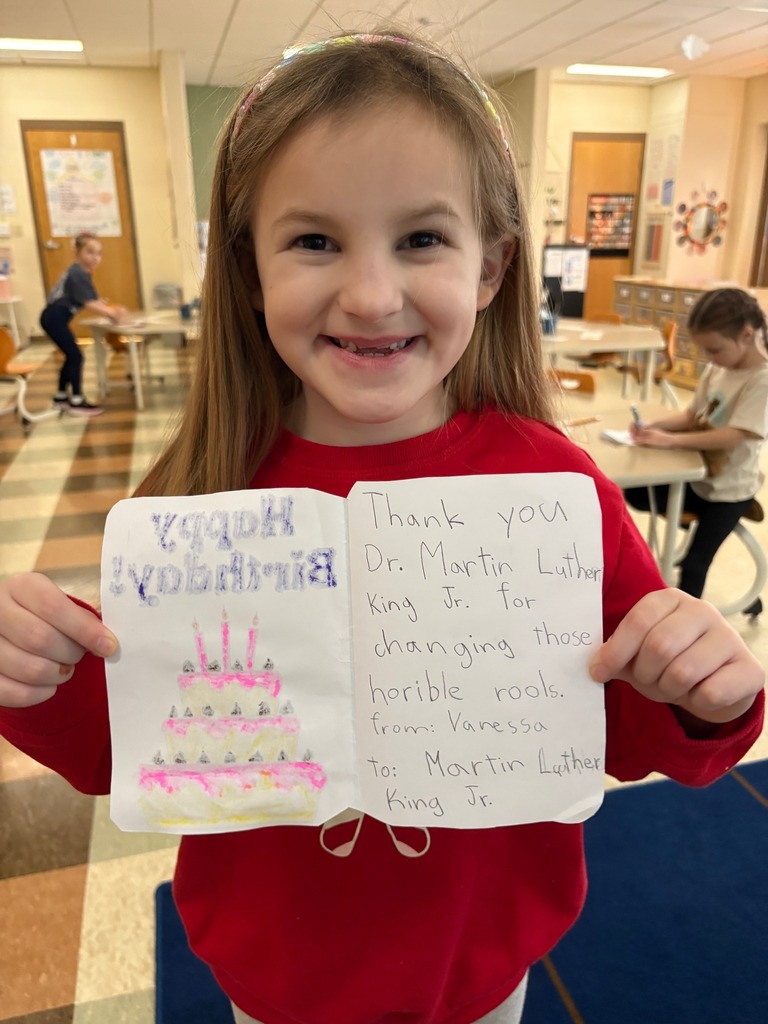 Happy
Birthday!
Thank you
Dr. Martin Luther
King Jr. for
changing those
horible rools.
from: Vanessa
to: Martin Luther
King Jr.